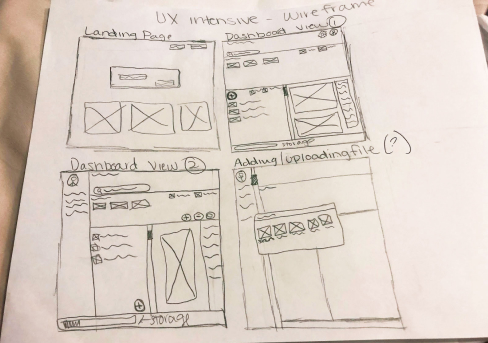 UX intensive - Wireframe
Landing Page
Dashboard View ①
storage
Dashboard View ②
storage
Adding/uploading file (?)